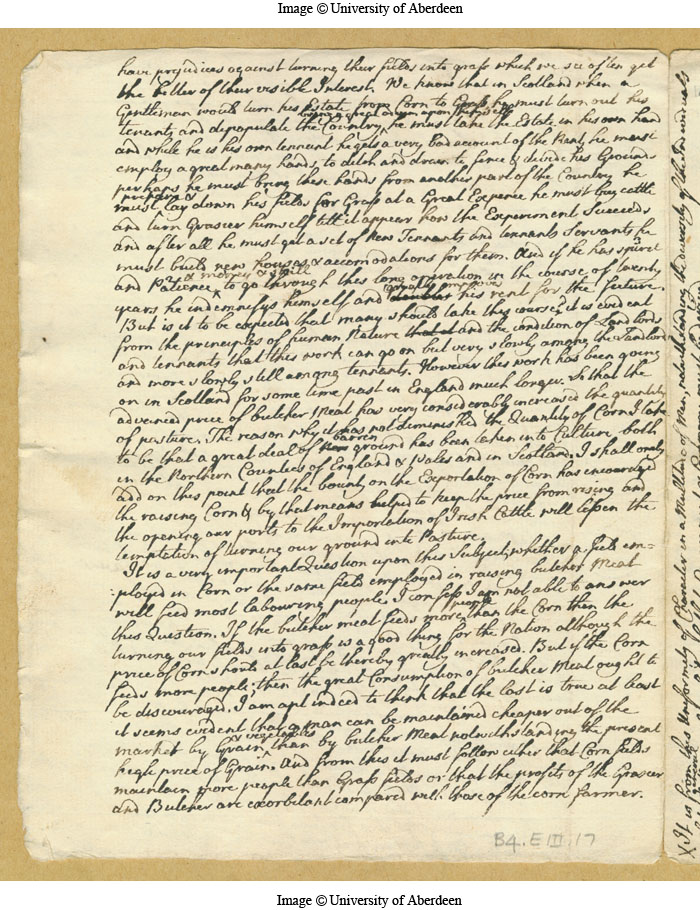 Image © University of Aberdeen
have prejudices against turning their fields into grass which we see often get
the better of their visible Interest. We know that in Scotland when a
Gentleman would turn his Estate from Corn to Grass he must turn out his
tennants and depopulate the Country, he must take the Estate in his own hand
and while he is his own tennant he gets a very bad account of the Rent, he must
employ a great many hands, to ditch and drain to fence & divide his Grounds
perhaps he must bring these hands from another part of the Country he
prepare &
must lay down his fields for Grass at a Great Expence he must buy cattle
and turn Grasier himself till it appear how the Experiment Succeeds
and after all he must get a set of New Tennants and tennants Servants he
must build new houses & accomodations for them. And if he has spirit
& money & skill
and Patience to go through this long operation in the course of twenty
greatly improves
years he indemnifys himself and his rent for the future.
But is it to be expected that many should take this course, it is evident
from the principles of human Nature and the condition of Landlords
and tennants that this work can go on but very slowly among the Landlords
and more slowly still among tennants. However this work has been going
on in Scotland for some time past in England much longer. So that the
advanced price of butcher Meat has very considerably increased the quantity
of pasture. The reason why it has not diminished the Quantity of Corn I take
barren
to be that a great deal of ground has been taken into Culture both
in the Northern Counties of England & Wales and in Scotland. I shall only
add on this point that the bounty on the Exportation of Corn has encouraged
the raising Corn & by that means helped to keep the price from rising and
the opening our ports to the Importation of Irish Cattle will lessen the
temptation of turning our ground into Pasture.
It is a very important Question upon this Subject, whether a field em=
ployed in Corn or the same field employed in raising butcher Meat
will feed most labouring people. I confess I am not able to answer
people
this Question. If the butcher meat feeds more than the Corn then the
turning our fields into grass is a good thing for the Nation although the
price of Corn should at last be thereby greatly increased. But if the Corn
feeds more people, then the great Consumption of butcher Meat ought to
be discouraged. I am apt indeed to think that the last is true at least
it seems evident that a man can be maintained cheaper out of the
& vegetables
market by Grain, than by butcher Meat notwithstanding the present
high price of Grain. And from this it must follow either that Corn fields
maintain more people than Grass fields or that the profits of the Grasier
and Butcher are exorbitant compared with those of the corn farmer.
B4.E III.17
X It is from this Uniformity of Character in a Multitude of Men, notwithstanding the diversity of the Individuals
Image © University of Aberdeen